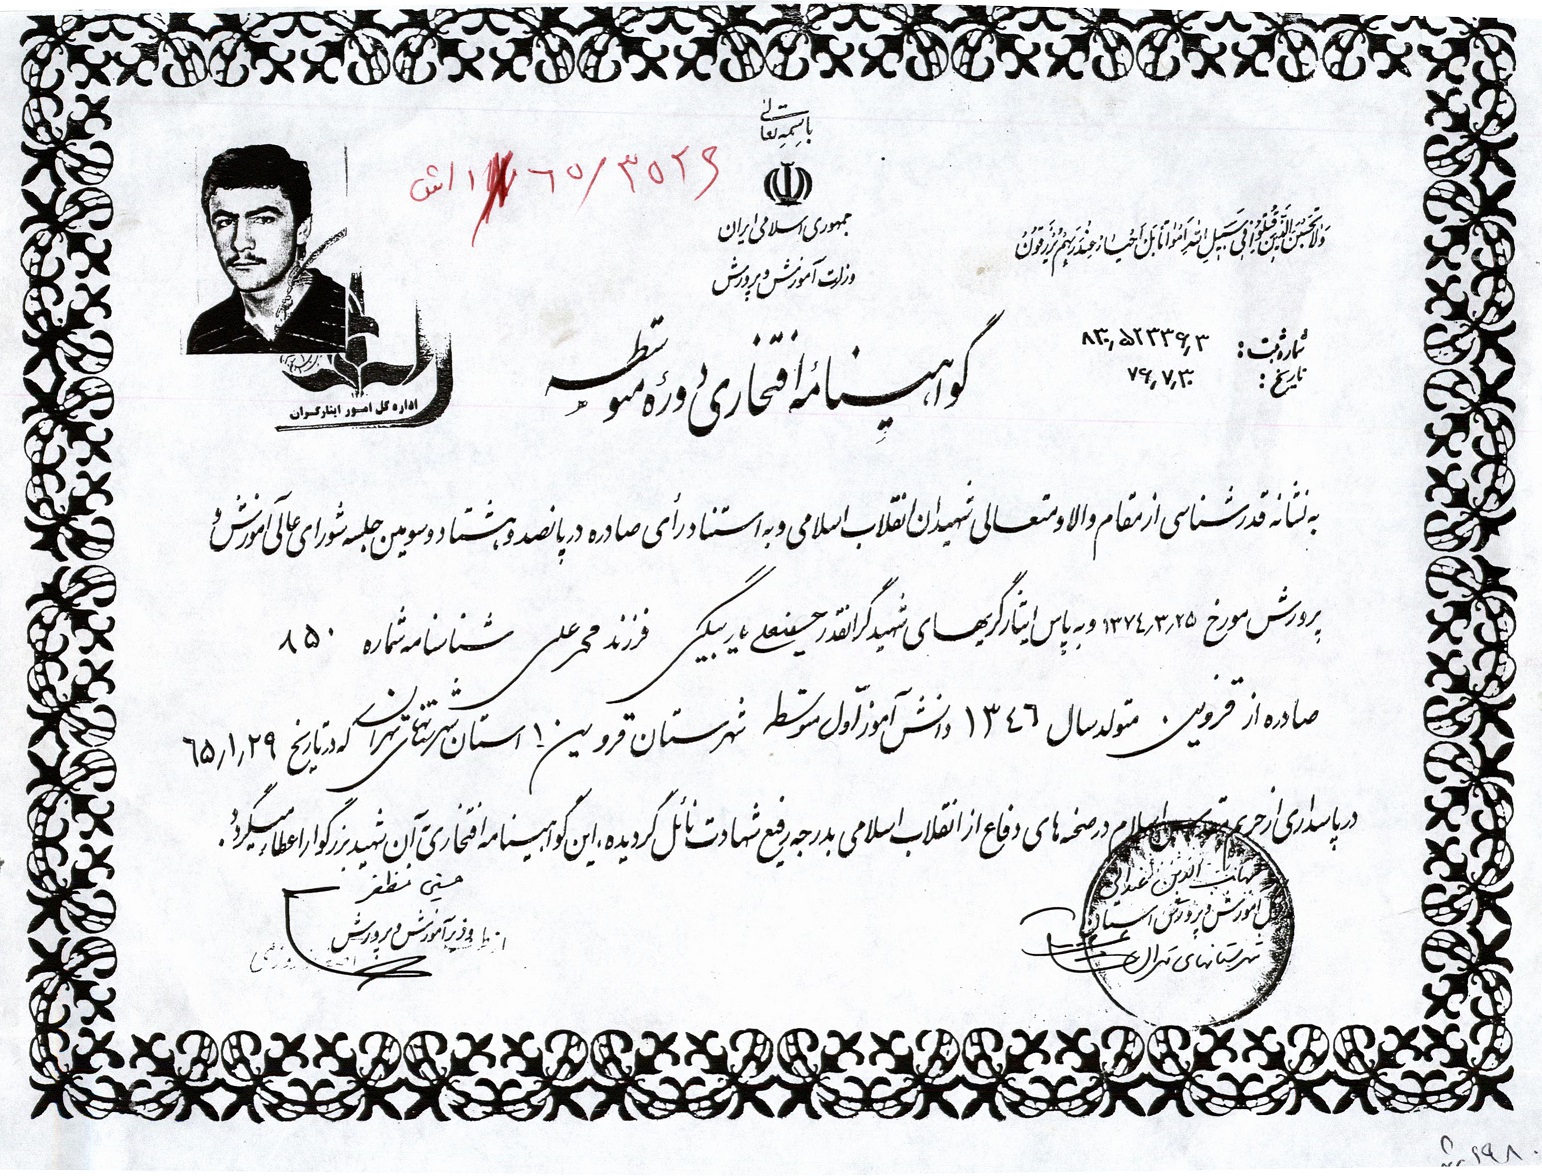 باسمه تعالی
جمهوری اسلامی ایران
وزارت آموزش و پرورش
ولا تحسبن الذین قتلوا فی سبیل الله امواتا بل احیاء عند ربهم یرزقون
۶۵/۳۵۲۶
شماره ثبت:
تاریخ: ۷۹٫۷٫۳۰
گواهینامهٔ افتخاری دورهٔ متوسطه
اداره کل امور ایثارگران
به نشانه قدرشناسی از مقام والا و متعالی شهیدان انقلاب اسلامی و به استناد رأی صادره در پانصد و هشتاد و سومین جلسه شورای عالی آموزش و
پرورش مورخ ۱۳۷۴٫۳٫۲۵ و به پاس ایثارگریهای شهید گرانقدر حسینعلی یاربیگی فرزند محمدعلی شناسنامه شماره ۸۵۰
صادره از قزوین متولد سال ۱۳۴۶ دانش آموز اول متوسطه شهرستان قزوین ۱ استان شهرستانهای تهران که در تاریخ ۶۵٫۱٫۲۹
در پاسداری از حریم اسلام در صحنه های دفاع از انقلاب اسلامی بدرجه رفیع شهادت نائل گردیده، این گواهینامه افتخاری به آن شهید بزرگوار اعطاء میگردد.
حسین مظفر
وزیر آموزش و پرورش
آموزش و پرورش استان
شهرستانهای تهران